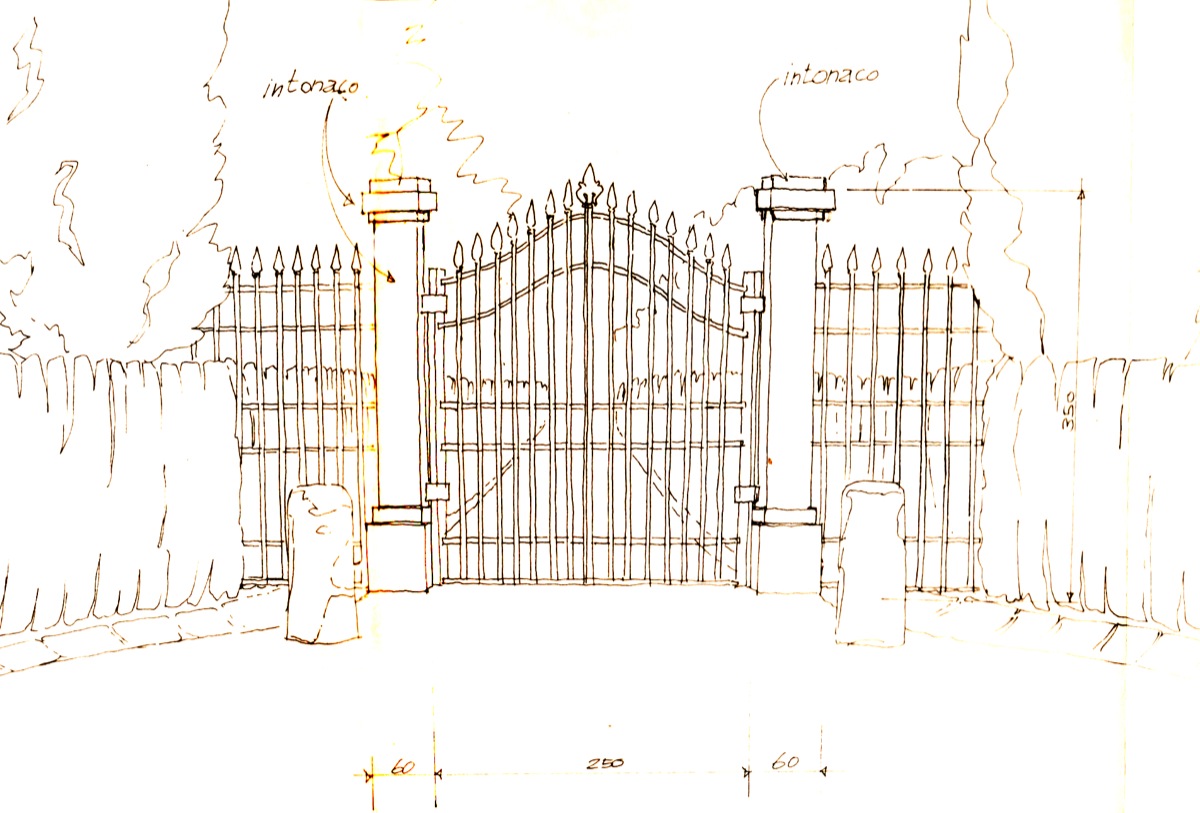 intonaco
intonaco
350
60
250
60